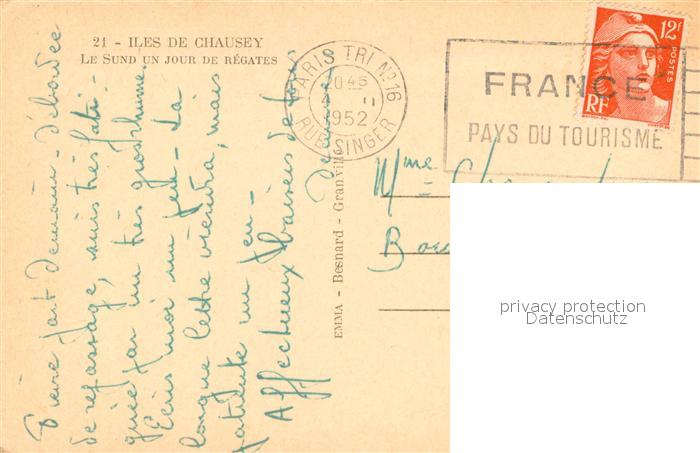 21 - ILES DE CHAUSEY
LE SUND UN JOUR DE RÉGATES
PARIS TRI Nº 16
20 45
4 - II
1952
RUE SINGER
FRANCE
PAYS DU TOURISME
12F
POSTES
RF
EMMA - Besnard - Granville
Mme
privacy protection
Datenschutz
Pierre part demain - Débordée
de repassage, suis très fati-
guée par un très gros rhume.
Ecris moi un peu - La
longue lettre viendra, mais
patiente un peu -
Affectueux baisers de tous